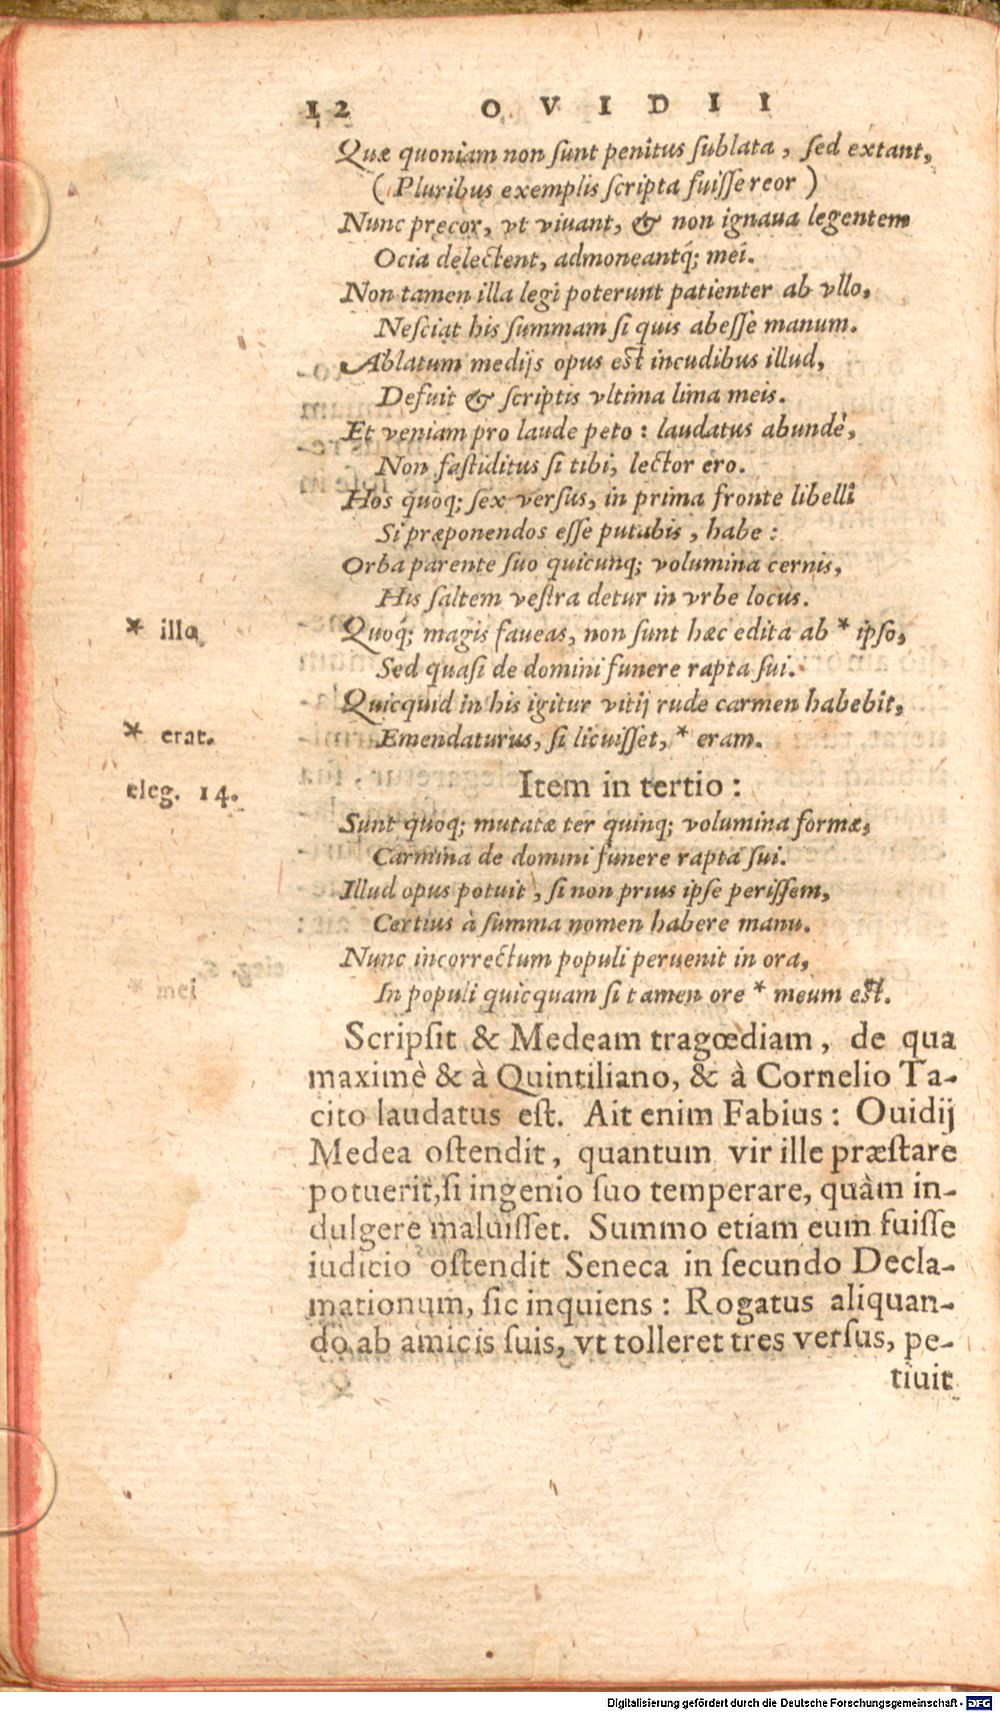 12 OVIDII
Quæ quoniam non ſunt penitus ſublata, ſed extant,
(Pluribus exemplis ſcripta fuiſſe reor)
Nunc precor, vt viuant, & non ignaua legentem
Ocia delectent, admoneantq́; mei.
Non tamen illa legi poterunt patienter ab vllo,
Neſciat his ſummam ſi quis abeſſe manum.
Ablatum medijs opus eſt incudibus illud,
Defuit & ſcriptis vltima lima meis.
Et veniam pro laude peto: laudatus abundè,
Non faſtiditus ſi tibi, lector ero.
Hos quoq; ſex verſus, in prima fronte libelli
Si præponendos eſſe putabis, habe:
Orba parente ſuo quicunq; volumina cernis,
His ſaltem veſtra detur in vrbe locus.
* illo
Quoq́; magis faueas, non ſunt hæc edita ab * ipſo,
Sed quaſi de domini funere rapta ſui.
Quicquid in his igitur vitij rude carmen habebit,
* erat.
Emendaturus, ſi licuiſſet, * eram.
eleg. 14.
Item in tertio:
Sunt quoq; mutatæ ter quinq; volumina formæ,
Carmina de domini funere rapta ſui.
Illud opus potuit, ſi non prius ipſe periſſem,
Certius à ſumma nomen habere manu.
Nunc incorrectum populi peruenit in ora,
* mei
In populi quicquam ſi tamen ore * meum eſt.
Scripſit & Medeam tragœdiam, de qua
maximè & à Quintiliano, & à Cornelio Ta-
cito laudatus eſt. Ait enim Fabius: Ouidij
Medea oſtendit, quantum vir ille præſtare
potuerit, ſi ingenio ſuo temperare, quàm in-
dulgere maluiſſet. Summo etiam eum fuiſſe
iudicio oſtendit Seneca in ſecundo Decla-
mationum, ſic inquiens: Rogatus aliquan-
do ab amicis ſuis, vt tolleret tres verſus, pe-
tiuit
Digitalisierung gefördert durch die Deutsche Forschungsgemeinschaft - DFG